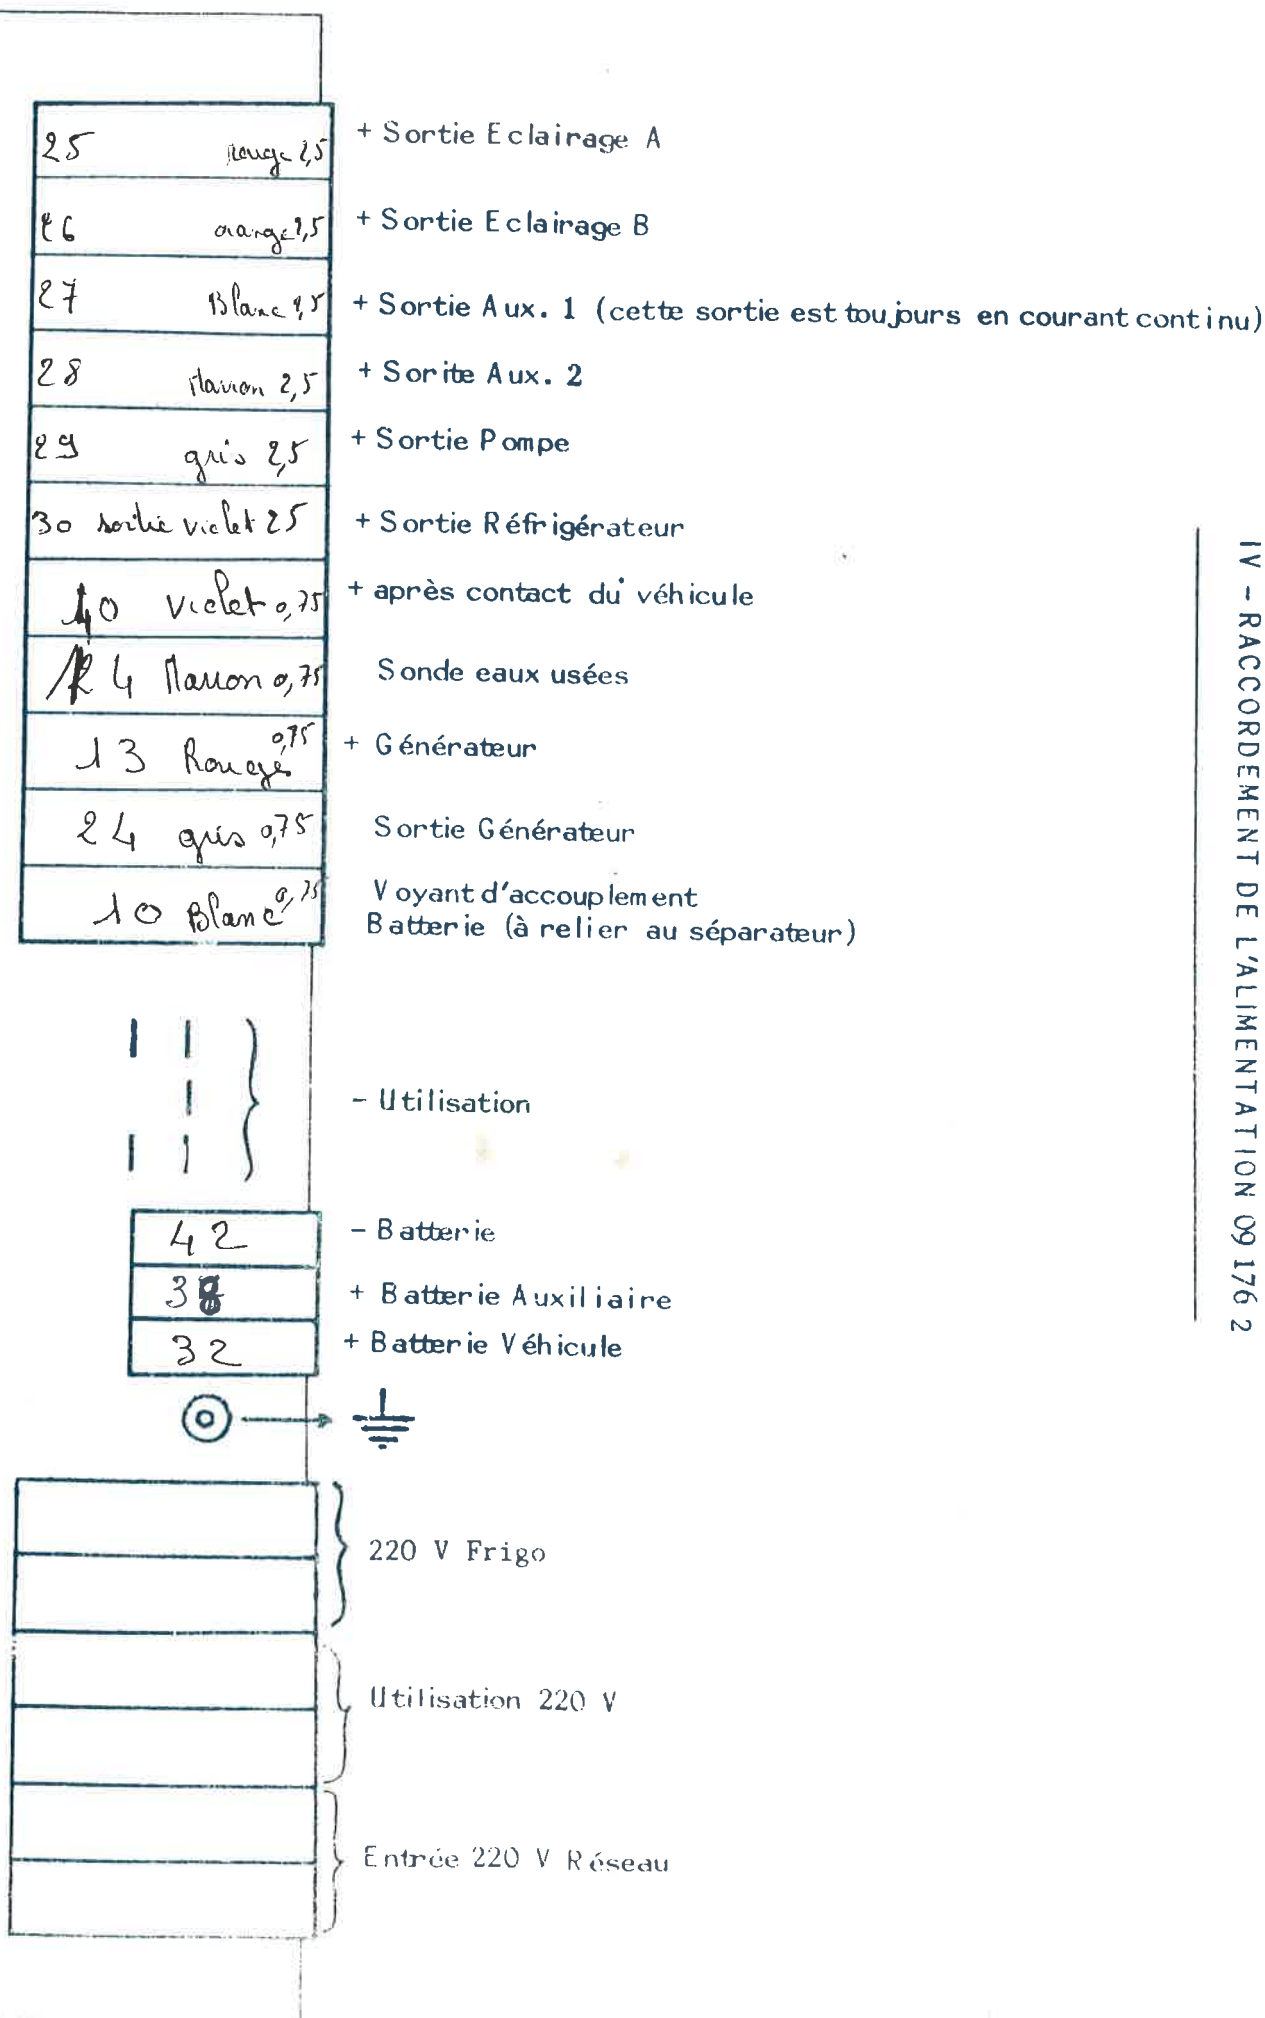 25 rouge 2,5 + Sortie Eclairage A
26 orange 2,5 + Sortie Eclairage B
27 Blanc 2,5 + Sortie Aux. 1 (cette sortie est toujours en courant continu)
28 Marron 2,5 + Sorite Aux. 2
29 gris 2,5 + Sortie Pompe
30 sortie violet 25 + Sortie Réfrigérateur
40 Violet 0,75 + après contact du véhicule
4 Marron 0,75 Sonde eaux usées
13 Rouge 0,75 + Générateur
24 gris 0,75 Sortie Générateur
10 Blanc 0,75 Voyant d'accouplement
Batterie (à relier au séparateur)
- Utilisation
42 - Batterie
38 + Batterie Auxiliaire
32 + Batterie Véhicule
220 V Frigo
Utilisation 220 V
Entrée 220 V Réseau
IV - RACCORDEMENT DE L'ALIMENTATION 09 176 2